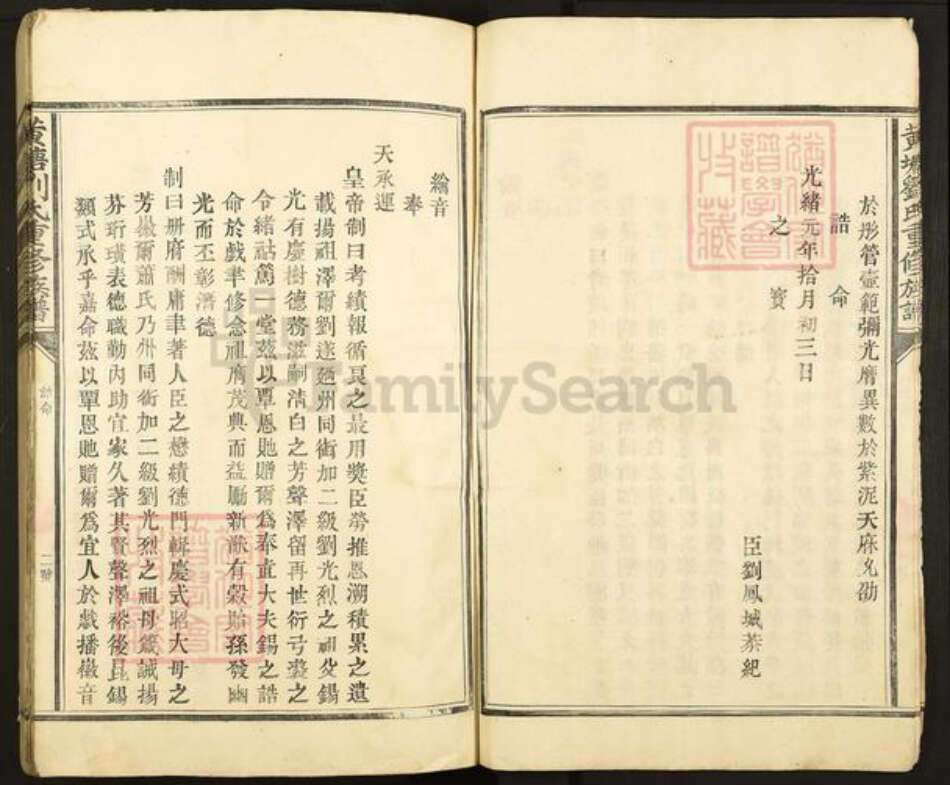 黃塘劉氏重修族譜
於彤管壼範彌光膺異數於紫泥天庥允劭
誥命
光緒元年拾月初三日
之寶
臣劉鳳城恭紀
綸音
奉
天承運
皇帝制曰考績報循良之最用獎臣勞推恩溯積累之遺
載揚祖澤爾劉遂廼州同銜加二級劉光烈之祖父錫
光有慶樹德務滋嗣清白之芳聲澤留再世衍弓裘之
令緒祜篤一堂茲以覃恩貤贈爾為奉直大夫錫之誥
命於戲聿修念祖膺茂典而益勵新猷有穀貽孫發幽
光而丕彰潛德
制曰冊府酬庸聿著人臣之懋績德門輯慶式昭大母之
芳徽爾蕭氏乃州同銜加二級劉光烈之祖母箴誡揚
芬珩璜表德職勤內助宜家久著其賢聲澤裕後昆錫
類式承乎嘉命茲以覃恩貤贈爾為宜人於戲播徽音
黃塘劉氏重修族譜
誥命
二
FamilySearch